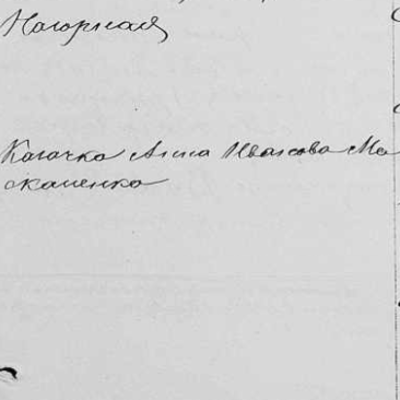 Нагорная
Казачка Анна Иванова Ма
окаленко